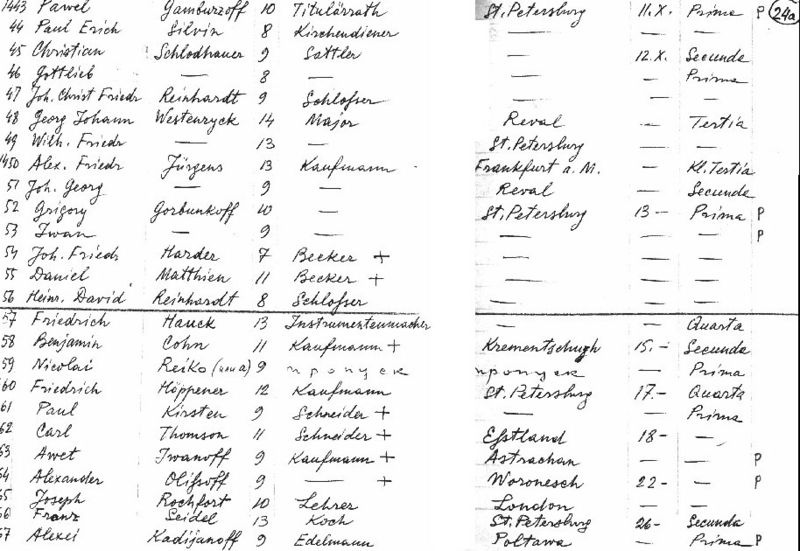 1443 Pawel Gamburzoff 10 Titulärrath St. Petersburg 11.X. Prima P 24a
44 Paul Erich Silvin 8 Kirchendiener — — —
45 Christian Schlodhauer 9 Sattler — 12.X. Secunda
46 Gottlieb — 8 — — — Prima
47 Joh. Christ Friedr Reinhardt 9 Schlosser — — —
48 Georg Johann Westenryck 14 Major Reval — Tertia
49 Wilh. Friedr — 13 — St. Petersburg — —
1450 Alex. Friedr Jürgens 13 Kaufmann Frankfurt a. M. — Kl. Tertia
51 Joh. Georg — 9 — Reval — Secunda
52 Grigory Gorbunkoff 10 — St. Petersburg 13- Prima P
53 Iwan — 9 — — — — P
54 Joh. Friedr Harder 7 Becker + — — —
55 Daniel Matthien 11 Becker + — — —
56 Heinr. David Reinhardt 8 Schlosser — — —
57 Friedrich Hauck 13 Instrumentenmacher — — Quarta
58 Benjamin Cohn 11 Kaufmann + Krementschugh 15.- Secunda
59 Nicolai Reiko 9 пропуск пропуск — Prima
60 Friedrich Höppener 12 Kaufmann St. Petersburg 17.- Quarta
61 Paul Kirsten 9 Schneider + — — Prima
62 Carl Thomson 11 Schneider + Esstland 18- —
63 Awet Iwanoff 9 Kaufmann + Astrachan — — P
64 Alexander Olissoff 9 — + Woronesch 22- — P
65 Joseph Rochfort 10 Lehrer London — —
66 Franz Seidel 13 Koch St. Petersburg 26- Secunda
67 Alexei Kadijanoff 9 Edelmann Poltawa — Prima P